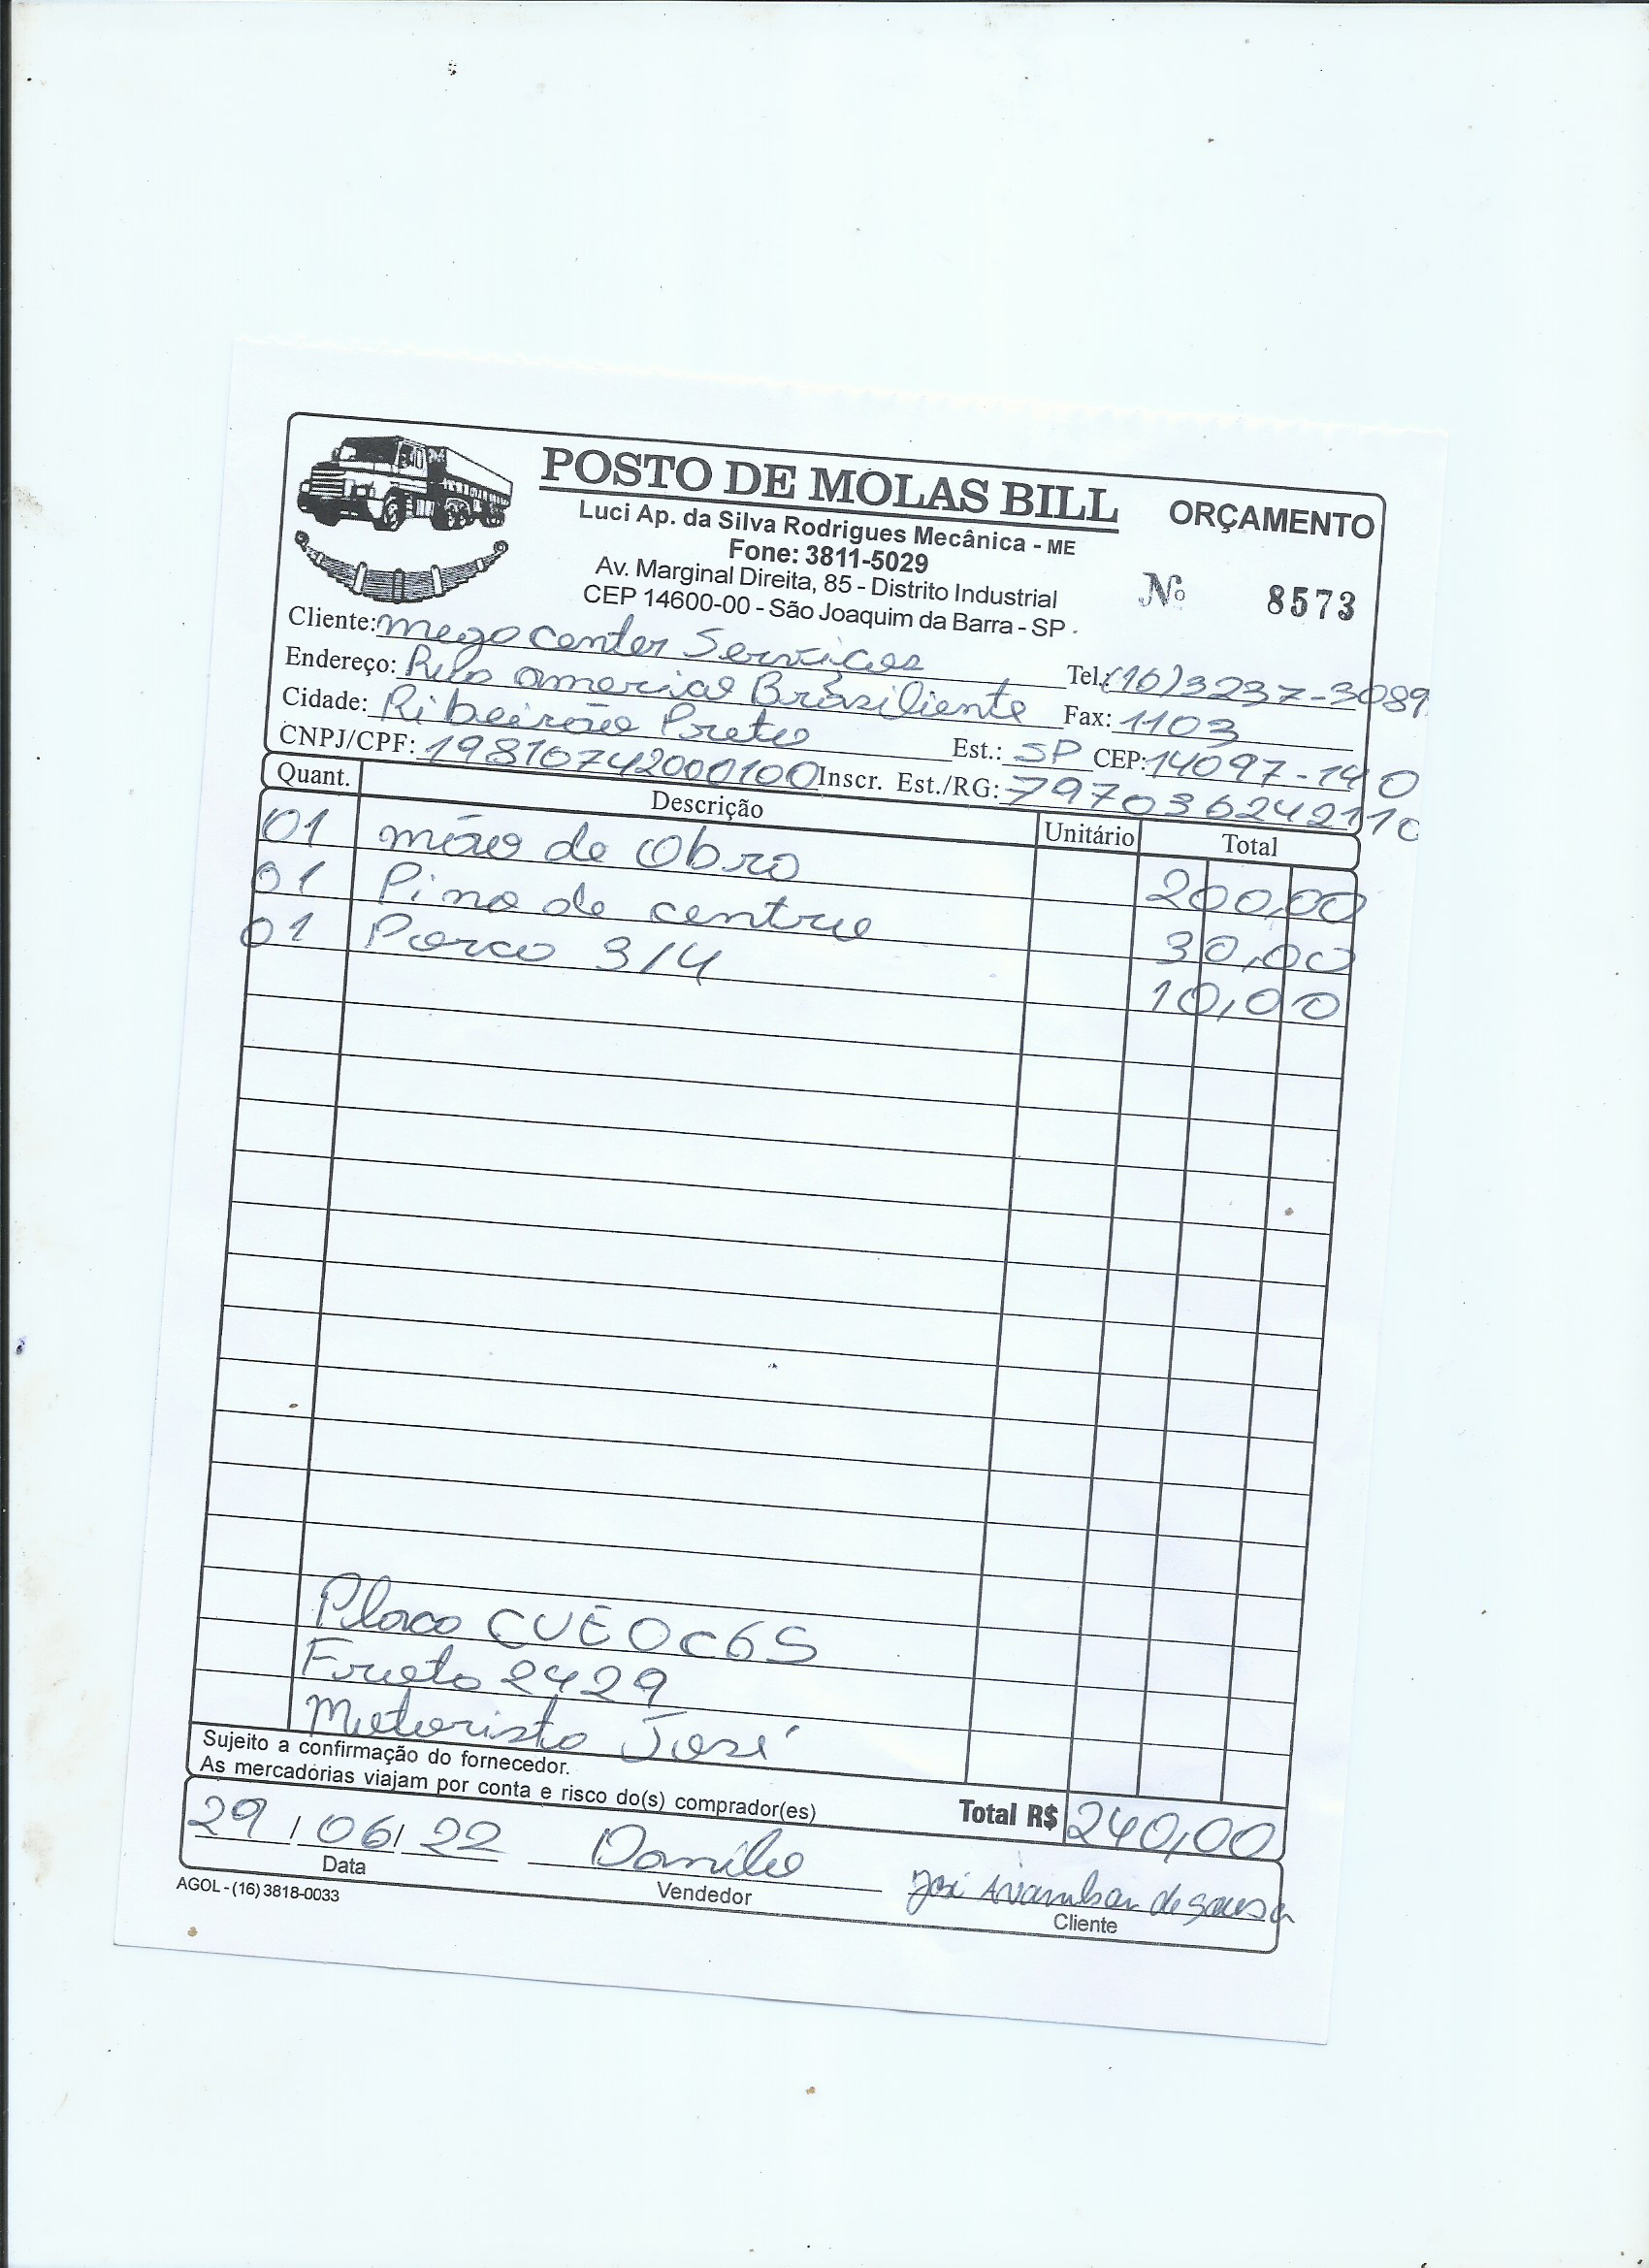 POSTO DE MOLAS BILL
ORÇAMENTO
Luci Ap. da Silva Rodrigues Mecânica - ME
Fone: 3811-5029
Av. Marginal Direita, 85 - Distrito Industrial
CEP 14600-00 - São Joaquim da Barra - SP
Nº 8573
Cliente: Mega Center Serviços Tel.: (16)3237-3089
Endereço: Rua Americo Brasiliente Fax: 1103
Cidade: Ribeirão Preto Est.: SP CEP: 14097-140
CNPJ/CPF: 19810742000100 Inscr. Est./RG: 797036242110
Quant. Descrição Unitário Total
01 mão de Obra 200,00
01 Pino de centro 30,00
01 Porca 3/4 10,00
Placa CUE0C65
Frota 2429
Motorista José
Sujeito a confirmação do fornecedor.
As mercadorias viajam por conta e risco do(s) comprador(es)
Total R$ 240,00
29/06/22 Danilo José de Sousa
Data Vendedor Cliente
AGOL - (16) 3818-0033